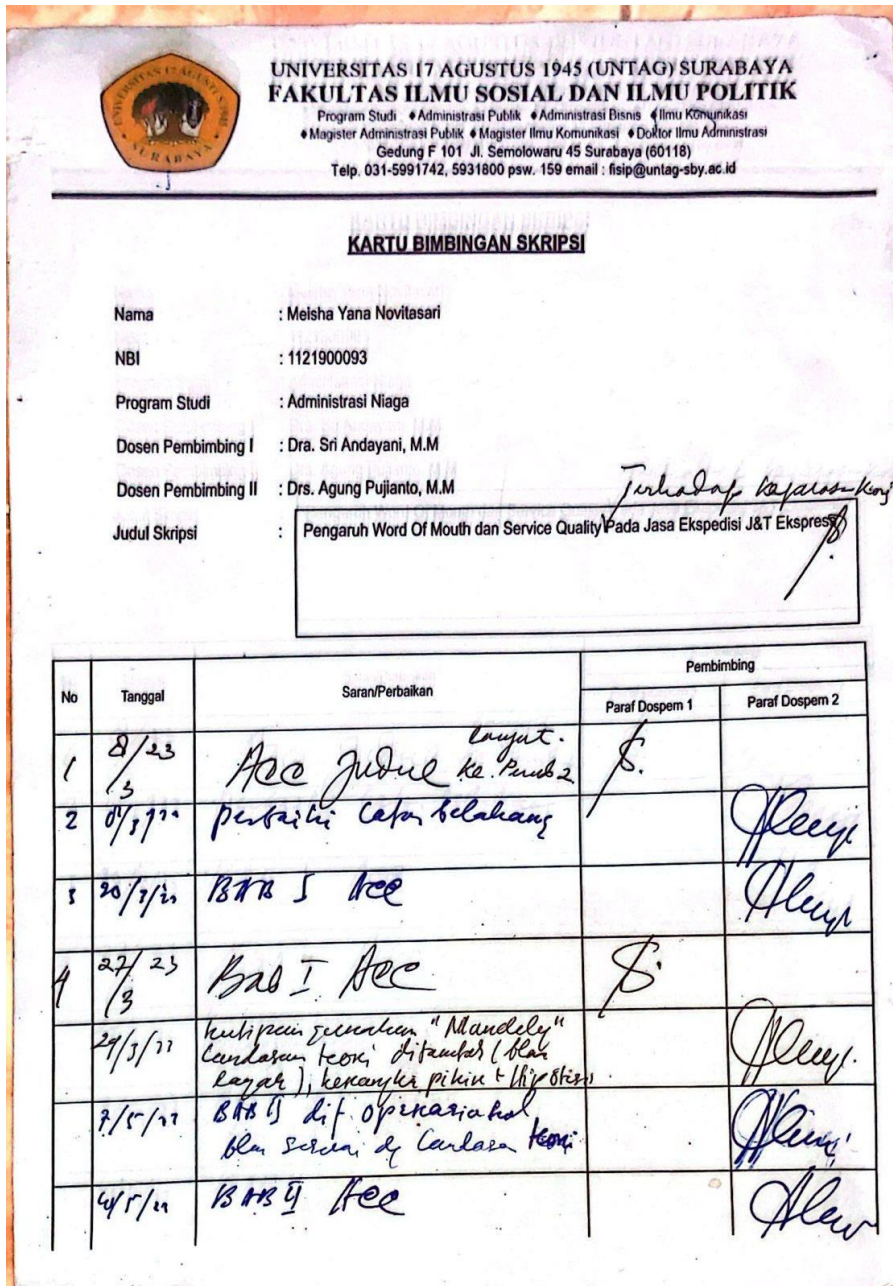 UNIVERSITAS 17 AGUSTUS 1945
SURABAYA
UNIVERSITAS 17 AGUSTUS 1945 (UNTAG) SURABAYA
FAKULTAS ILMU SOSIAL DAN ILMU POLITIK
Program Studi : ♦Administrasi Publik ♦Administrasi Bisnis ♦Ilmu Komunikasi
♦Magister Administrasi Publik ♦Magister Ilmu Komunikasi ♦Doktor Ilmu Administrasi
Gedung F 101 Jl. Semolowaru 45 Surabaya (60118)
Telp. 031-5991742, 5931800 psw. 159 email : fisip@untag-sby.ac.id
KARTU BIMBINGAN SKRIPSI
Nama : Meisha Yana Novitasari
NBI : 1121900093
Program Studi : Administrasi Niaga
Dosen Pembimbing I : Dra. Sri Andayani, M.M
Dosen Pembimbing II : Drs. Agung Pujianto, M.M
Terhadap
Judul Skripsi : Pengaruh Word Of Mouth dan Service Quality Pada Jasa Ekspedisi J&T Ekspress
No Tanggal Saran/Perbaikan Pembimbing
Paraf Dospem 1 Paraf Dospem 2
1 8/23 /3 Acc Judul lanjut. ke. Pemb 2
2 perbaiki Latar belakang
3 20/3/23 BAB I Acc
4 27/23 /3 Bab I Acc
29/3/23 kutipan gunakan "Mandely"
Landasan teori ditambah (blm
), kerangka pikir + Hipotesis
7/5/23 BAB II def. operasional
blm sesuai dg Landasan teori
BAB II Acc